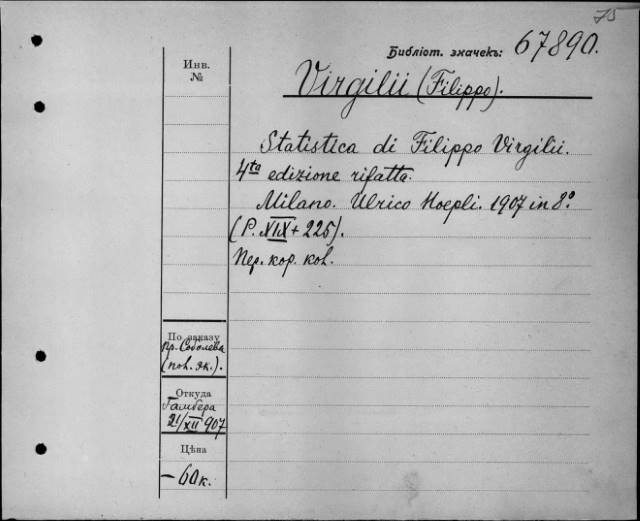 75
Библіот. значекъ: 67890.
Инв.
№
Virgilii (Filippo).
Statistica di Filippo Virgilii.
4ta edizione rifatta.
Milano. Ulrico Hoepli. 1907 in 8°
(P. XIX + 225).
Пер. кор. кол.
По заказу
пр. Соболева
(пол. эк.).
Откуда
Гамбера
21/XII 907
Цѣна
— 60 к.